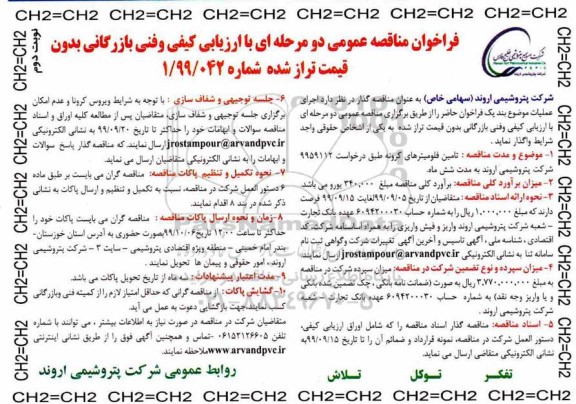 CH2=CH2 CH2=CH2 CH2=CH2 CH2=CH2 CH2=CH2 CH2=CH2
نوبت دوم
فراخوان مناقصه عمومی دو مرحله ای با ارزیابی کیفی وفنی بازرگانی بدون
قیمت تراز شده شماره ۱/۹۹/۰۴۲
شرکت پتروشیمی اروند (سهامی خاص) به عنوان مناقصه گذار در نظر دارد اجرای
عملیات موضوع بند یک فراخوان حاضر را از طریق برگزاری مناقصه عمومی دو مرحله ای
با ارزیابی کیفی وفنی بازرگانی بدون قیمت تراز شده به یکی از اشخاص حقوقی واجد
شرایط واگذار نماید .
۱- موضوع و مدت مناقصه : تامین فلومیترهای کرونه طبق درخواست ۹۹۵۹۱۱۲
شرکت پتروشیمی اروند به مدت شش ماه.
۲- میزان برآورد کلی مناقصه: برآورد کلی مناقصه مبلغ ۳۴۰,۰۰۰ یورو می باشد
۳- نحوه ارائه اسناد مناقصه : متقاضیان از تاریخ ۹۹/۰۹/۰۵ لغایت ۹۹/۰۹/۱۵ فرصت
دارند که مبلغ ۱,۰۰۰,۰۰۰ ریال را به شماره حساب ۶۰۹۴۲۰۰۳۰ عهده بانک تجارت
– شعبه پتروشیمی اروند واریز و فیش واریزی را به همراه شناسه شرکت، کد
اقتصادی ، شناسه ملی ، آگهی تاسیس و آخرین آگهی تغییرات شرکت وگواهی ثبت نام
سامانه ثنا به نشانی الکترونیکی jrostampour@arvandpvc.ir ارسال نمایند
۴- میزان سپرده و نوع تضمین شرکت در مناقصه: میزان سپرده شرکت در مناقصه
به مبلغ ۳.۷۷۰.۰۰۰.۰۰۰ ریال به صورت (ضمانت نامه بانکی ، چک تضمین شده بانکی
و یا واریز وجه نقد) به شماره حساب ۶۰۹۴۲۰۰۳۰ عهده بانک تجارت – شعبه
پتروشیمی اروند می باشد.
۵- اسناد مناقصه: مناقصه گذار اسناد مناقصه را که شامل اوراق ارزیابی کیفی،
دستور العمل شرکت در مناقصه، نمونه قرارداد و ضمائم آن را تا تاریخ ۹۹/۰۹/۱۵به
نشانی الکترونیکی متقاضی ارسال می نماید.
۶- جلسه توجیهی و شفاف سازی : با توجه به شرایط ویروس کرونا و عدم امکان
برگزاری جلسه توجیهی و شفاف سازی، متقاضیان پس از مطالعه کلیه اوراق و اسناد
مناقصه سوالات و ابهامات خود را حداکثر تا تاریخ ۹۹/۰۹/۲۰ به نشانی الکترونیکی
jrostampour@arvandpvc.ir ارسال نمایند که مناقصه گذار پاسخ سوالات
و ابهامات را به نشانی الکترونیکی متقاضیان ارسال می نماید.
۷- نحوه تکمیل و تنظیم پاکات مناقصه: مناقصه گران می بایست بر طبق ماده
۶دستور العمل شرکت در مناقصه، نسبت به تکمیل و تنظیم و ارسال پاکات به نشانی
ذکر شده در بند ۸ اقدام نمایند.
۸- زمان و نحوه ارسال پاکات مناقصه : مناقصه گران می بایست پاکات خود را
حداکثر تا ساعت ۱۲:۰۰ تاریخ ۹۹/۱۰/۰۶ بصورت حضوری به آدرس استان خوزستان-
بندر امام خمینی – منطقه ویژه اقتصادی پتروشیمی – سایت ۳ – شرکت پتروشیمی
اروند ، امور حقوقی و پیمان ها تحویل نمایند .
۹- مدت اعتبار پیشنهادات : سه ماه از تاریخ تحویل پاکات می باشد.
۱۰-گشایش پاکات: از مناقصه گرانی که حداقل امتیاز لازم را از کمیته فنی وبازرگانی
کسب نمایند،جهت بازگشایی دعوت به عمل می آید.
متقاضیان شرکت در مناقصه در صورت نیاز به اطلاعات بیشتر ، می توانند با شماره
تلفن ۰۶۱۵۲۱۲۶۶۰۵ -تماس و همچنین آگهی فوق را از طریق نشانی اینترنتی
www.arvandpvc.ir ملاحظه نمایند.
تفکر توکل تلاش
روابط عمومی شرکت پتروشیمی اروند
CH2=CH2 CH2=CH2 CH2=CH2 CH2=CH2 CH2=CH2 CH2=CH2